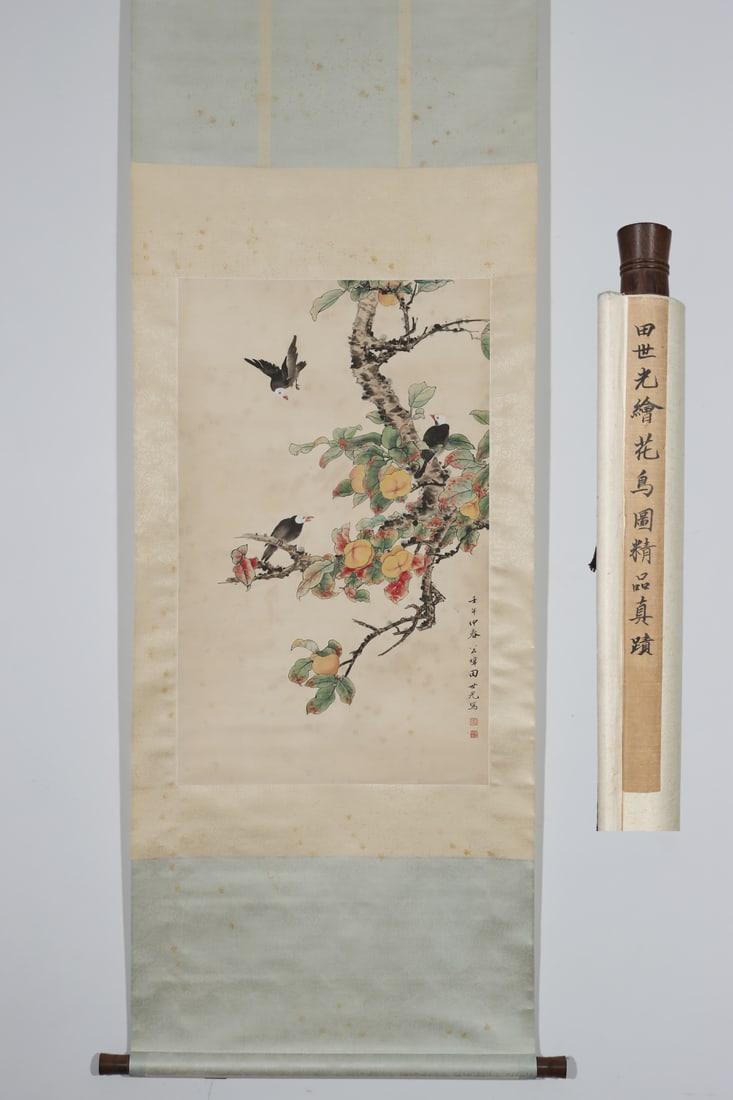 壬午仲春 公煒田世光寫
田世光繪花鳥圖精品真蹟